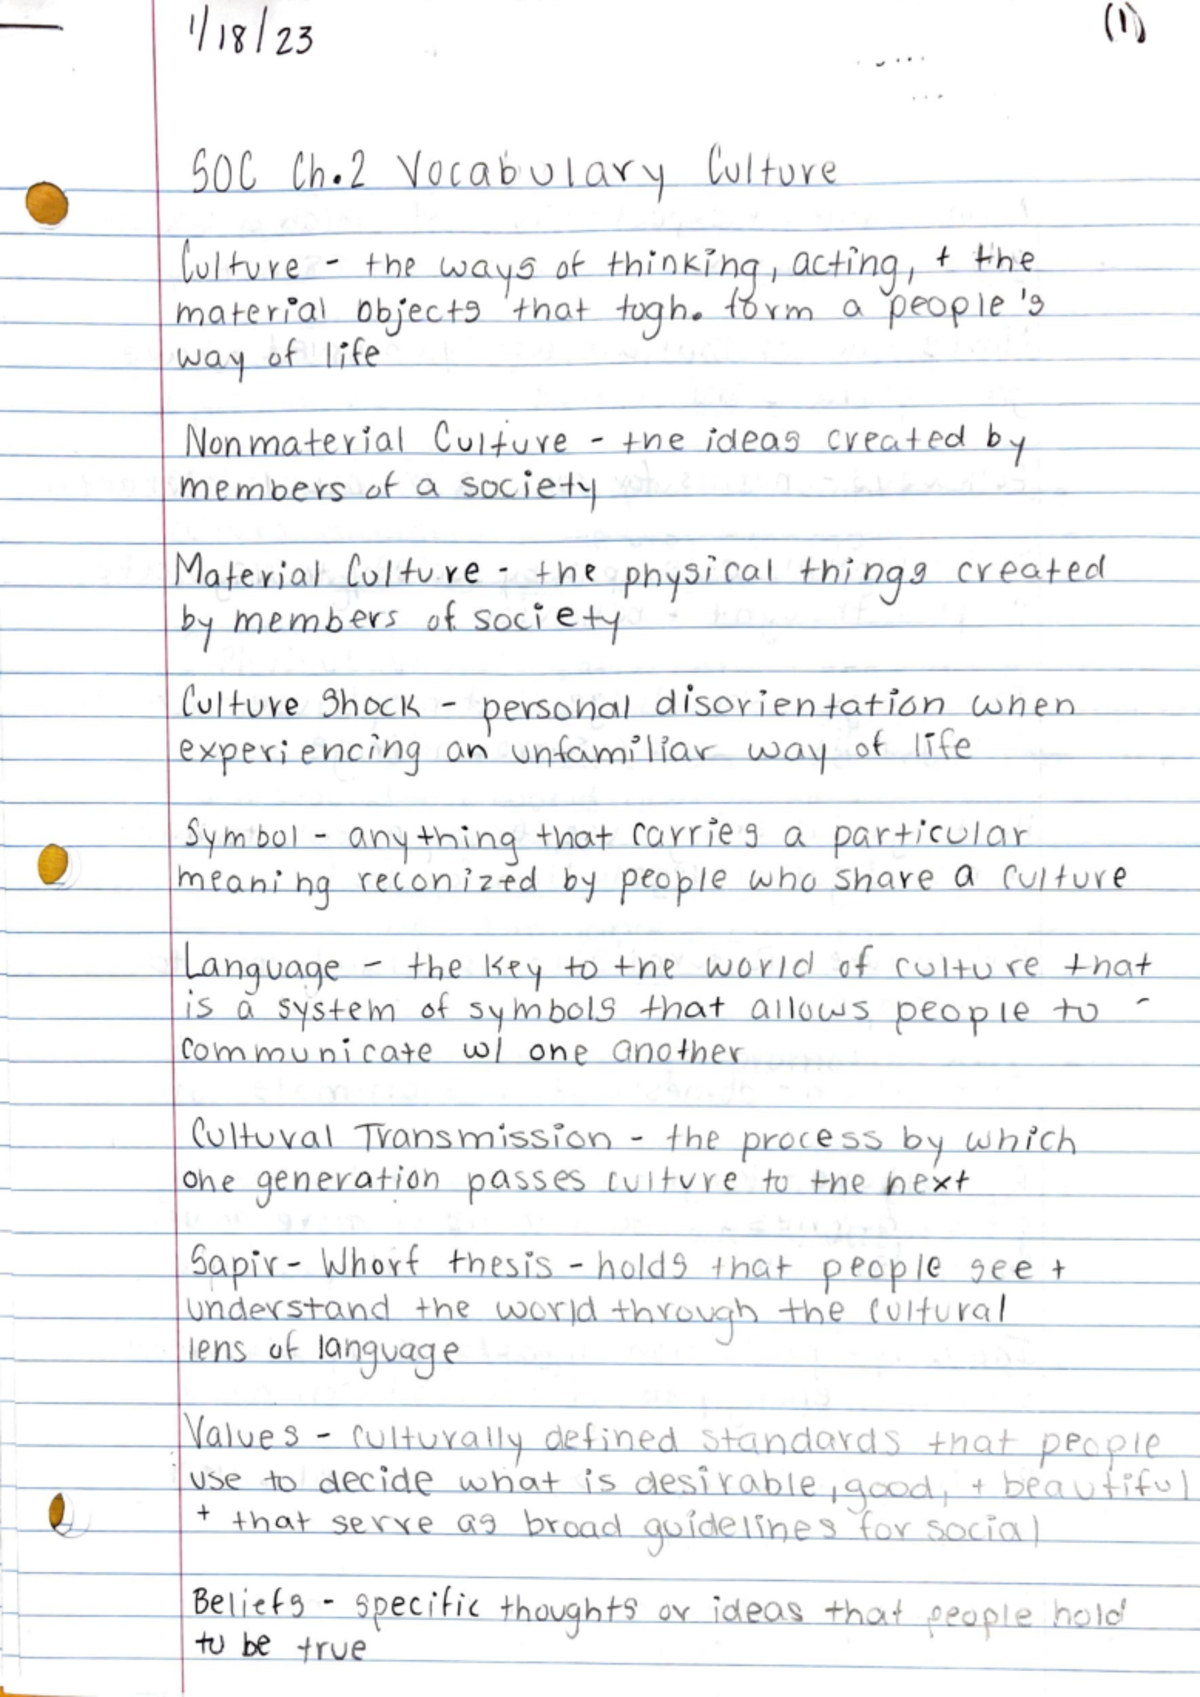 1/18/23
(1)
SOC Ch.2 Vocabulary Culture
Culture - the ways of thinking, acting, + the
material objects that togh. form a people's
way of life
Nonmaterial Culture - the ideas created by
members of a society
Material Culture - the physical things created
by members of society
Culture Shock - personal disorientation when
experiencing an unfamiliar way of life
Symbol - anything that carries a particular
meaning reconized by people who share a culture
Language - the key to the world of culture that
is a system of symbols that allows people to -
communicate w/ one another
Cultural Transmission - the process by which
one generation passes culture to the next
Sapir-Whorf thesis - holds that people see +
understand the world through the cultural
lens of language
Values - culturally defined standards that people
use to decide what is desirable, good, + beautiful
+ that serve as broad guidelines for social
Beliefs - specific thoughts or ideas that people hold
to be true